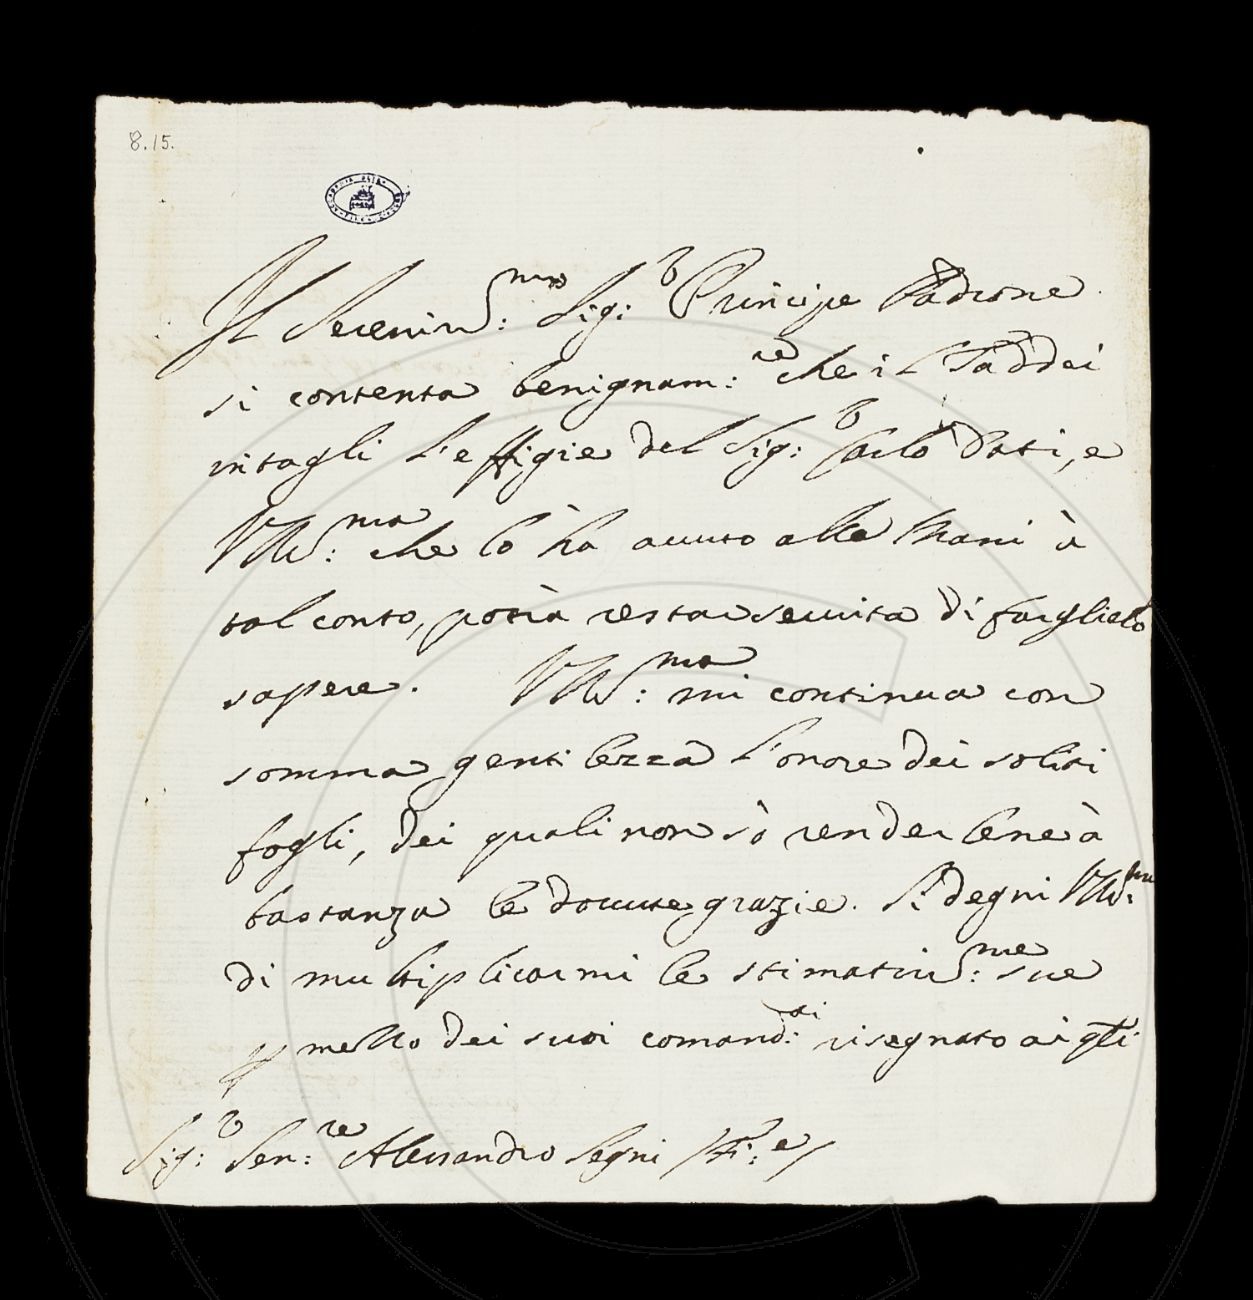 8.15.
Il Sereniss:mo Sig:r Principe Padrone
si contenta benignam:te che il Taddei
intagli l'effigie del Sig:r Carlo Dati, e
VS Ill:ma che lò hà avuto alle Mani à
tal conto, potrà restar servita di farglielo
sapere. VS Ill:ma mi continua con
somma gentilezza l'onore dei soliti
fogli, dei quali non sò renderlene à
bastanza le dovute grazie. Si degni VS Ill:ma
di multiplicarmi le stimatiss:me sue
mello dei suoi comand:ti risegnato ai qli
Sig:r Sen:re Alessandro Segni /Fi:e/